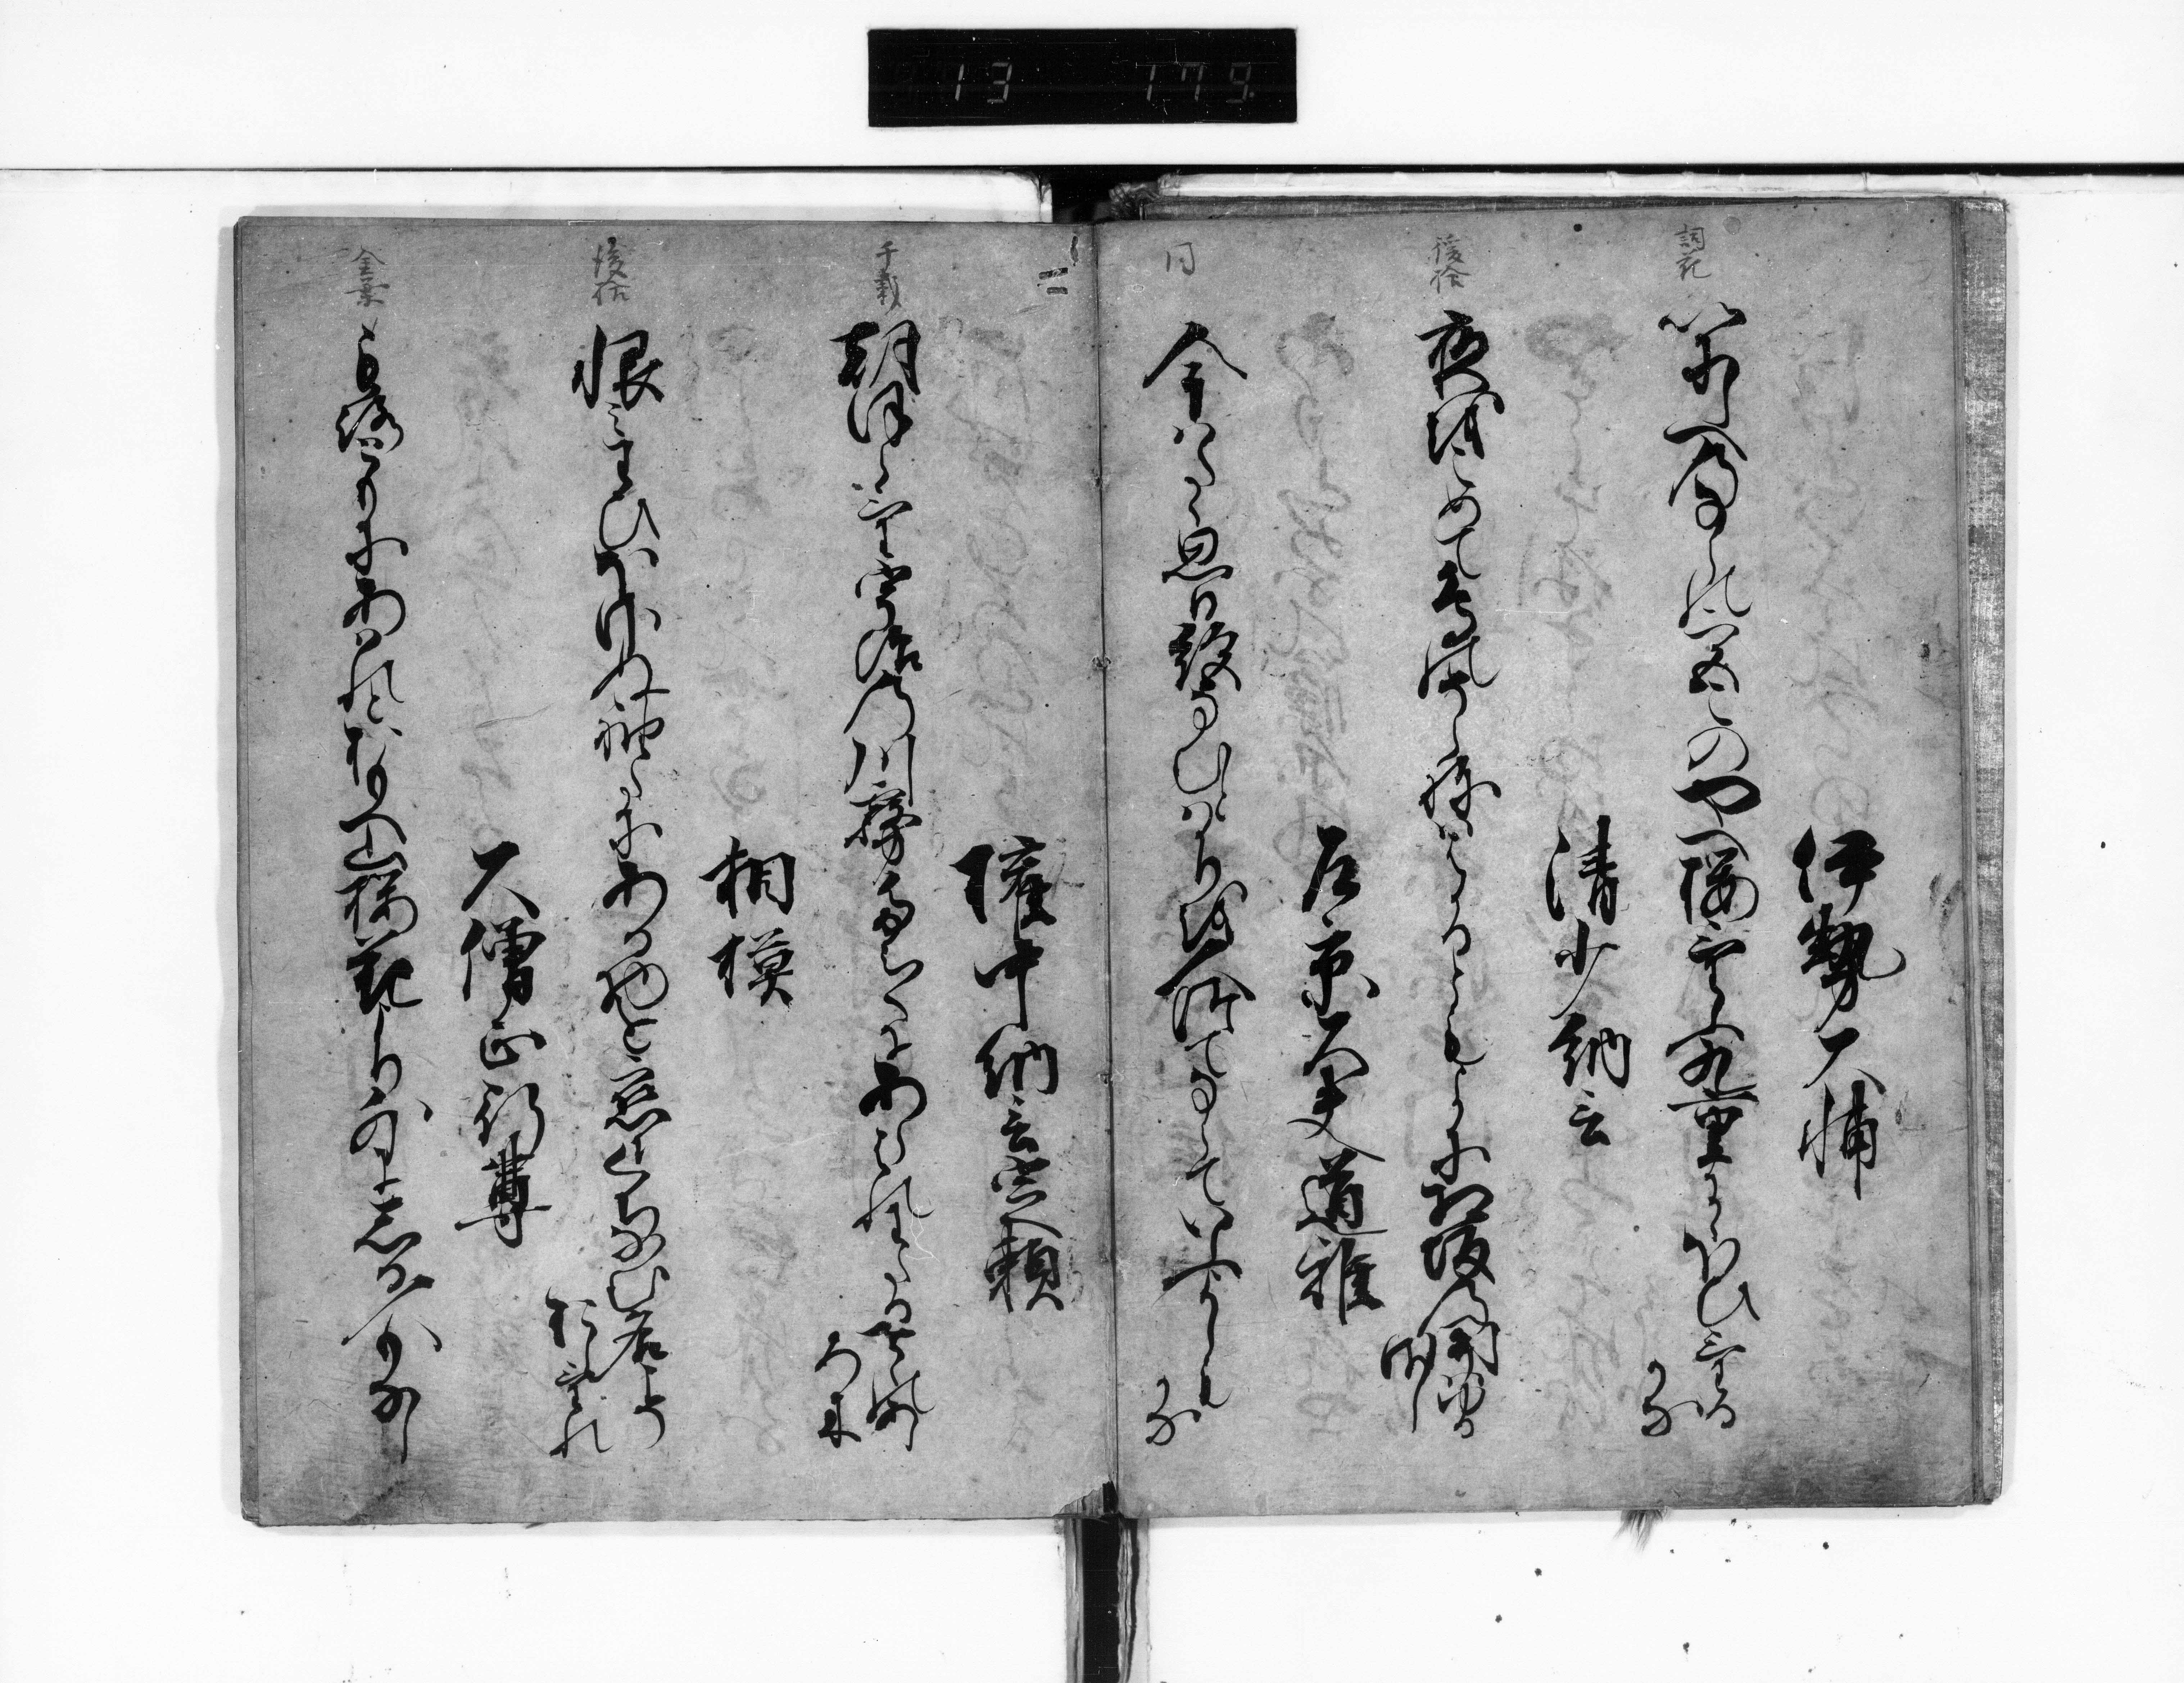 13 179
伊勢大輔
詞花
いにしへのならの都の八重桜けふ九重ににほひぬる
かな
清少納言
後拾
夜をこめて鳥の空ねははかるともよに相坂の関はゆる
さし
左京大夫道雅
同
今はたゝ思ひ絶なむとはかりを人伝てならていふよしも
かな
権中納言定頼
千載
朝ほらけ宇治の川霧たえ〳〵にあらはれわたるせゝの
あしろ木
相模
後拾
恨わひほさぬ袖たにある物を恋にくちなむ名こそ
おしけれ
大僧正行尊
金葉
もろともにあはれとおもへ山桜花より外にしる人もなし